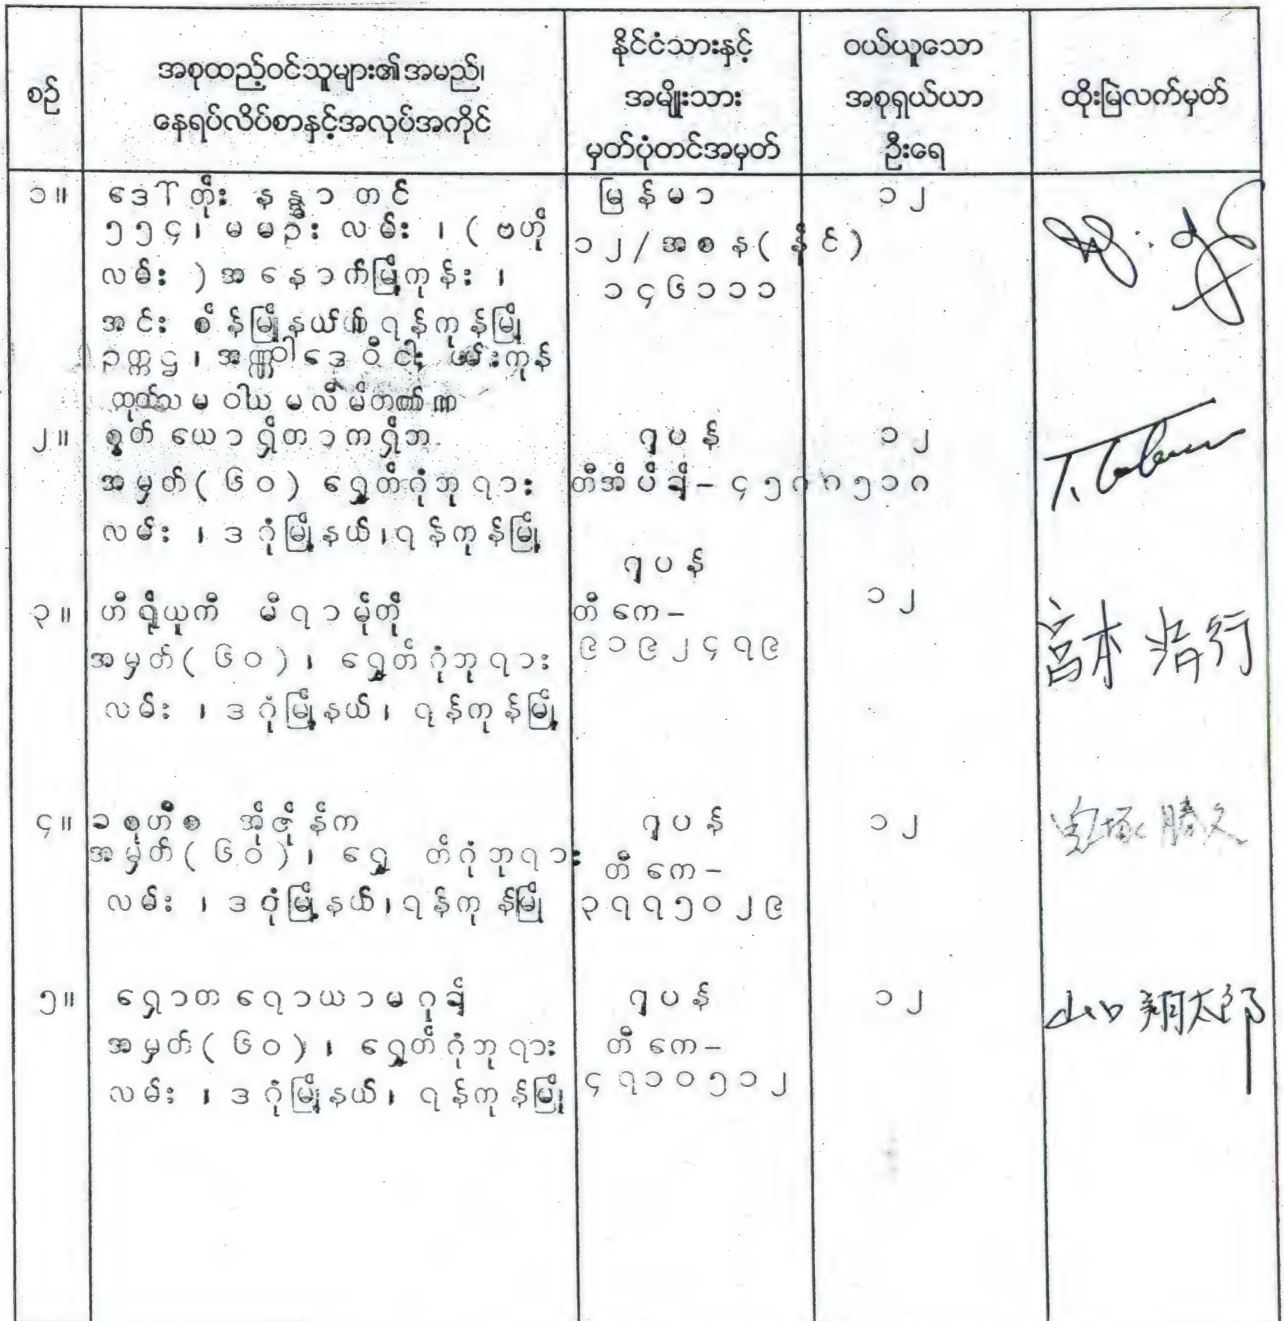 စဉ်
အစုထည့်ဝင်သူများ၏အမည်၊
နေရပ်လိပ်စာနှင့်အလုပ်အကိုင်
နိုင်ငံသားနှင့်
အမျိုးသား
မှတ်ပုံတင်အမှတ်
ဝယ်ယူသော
အစုရှယ်ယာ
ဦးရေ
ထိုးမြဲလက်မှတ်
၁။
ဒေါ်တိုး နန္ဒာတင်
၅၅၄၊ မမဉ်း လမ်း ၊ ( ဗဟို
လမ်း ) အနောက်မြို့ကုန်း ၊
အင်းစိန်မြို့နယ် ရန်ကုန်မြို့
ဥက္ကဋ္ဌ ၊
မြန်မာ
၁၂/အစန(နိုင်)
၁၄၆၁၁၁
၁၂
၂။
စွတ် ယောရှိတာကရှိဘ
အမှတ်(၆၀) ရွှေတိဂုံဘုရား
လမ်း ၊ ဒဂုံမြို့နယ်၊ရန်ကုန်မြို့
ဂျပန်
၁၂
၃။
ဟီရိုယူကီ မီရာမိုတို
အမှတ်(၆၀)၊ ရွှေတိဂုံဘုရား
လမ်း ၊ ဒဂုံမြို့နယ်၊ ရန်ကုန်မြို့
ဂျပန်
တီကေ-
၉၁၉၂၄၇၉
၁၂
宮本 浩行
၄။
ခစုဟီစ အိုဇုန်က
အမှတ်(၆၀)၊ ရွှေတိဂုံဘုရား
လမ်း ၊ ဒဂုံမြို့နယ်၊ရန်ကုန်မြို့
ဂျပန်
တီကေ-
၃၇၇၅၀၂၉
၁၂
၅။
ရှောတရောယာမဂုချိ
အမှတ်(၆၀)၊ ရွှေတိဂုံဘုရား
လမ်း ၊ ဒဂုံမြို့နယ်၊ ရန်ကုန်မြို့
ဂျပန်
တီကေ-
၄၇၁၀၅၁၂
၁၂
山口 翔太郎